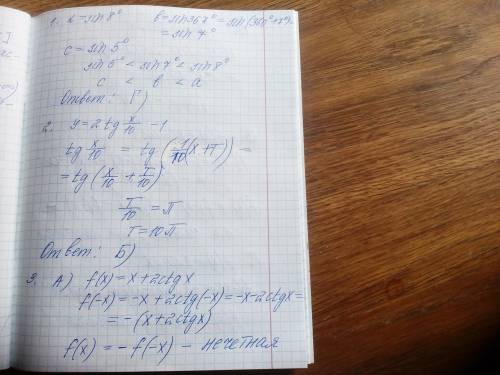 1. a = sin 8° b = sin 367° = sin(360°+7°) =
= sin 7°
c = sin 5°
sin 5° < sin 7° < sin 8°
c < b < a
Ответ: Г)
2. y = 2 tg x/10 - 1
tg x/10 = tg (1/10 (x+T)) =
= tg (x/10 + T/10)
T/10 = π
T = 10π
Ответ: Б)
3. А) f(x) = x + 2ctgx
f(-x) = -x + 2ctg(-x) = -x - 2ctgx =
= - (x + 2ctgx)
f(x) = - f(-x) - нечетная